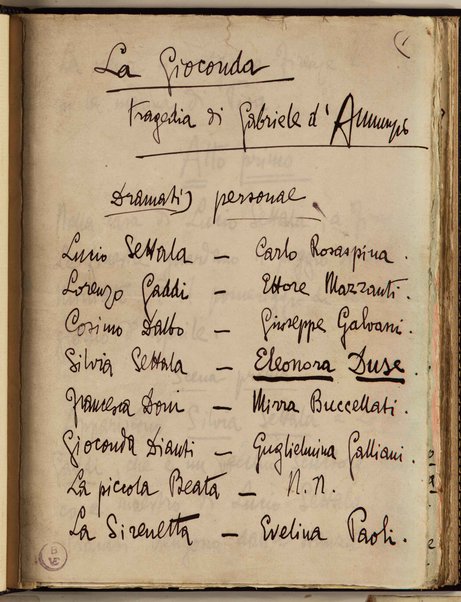 La Gioconda
tragedia di Gabriele d'Annunzio
Dramatis personae
Lucio Settala — Carlo Rosaspina.
Lorenzo Gaddi — Ettore Mazzanti.
Cosimo Dalbo — Giuseppe Galvani.
Silvia Settala — Eleonora Duse.
Francesca Doni — Mirra Buccellati.
Gioconda Dianti — Guglielmina Galliani.
La piccola Beata — N.N.
La Sirenetta — Evelina Paoli.